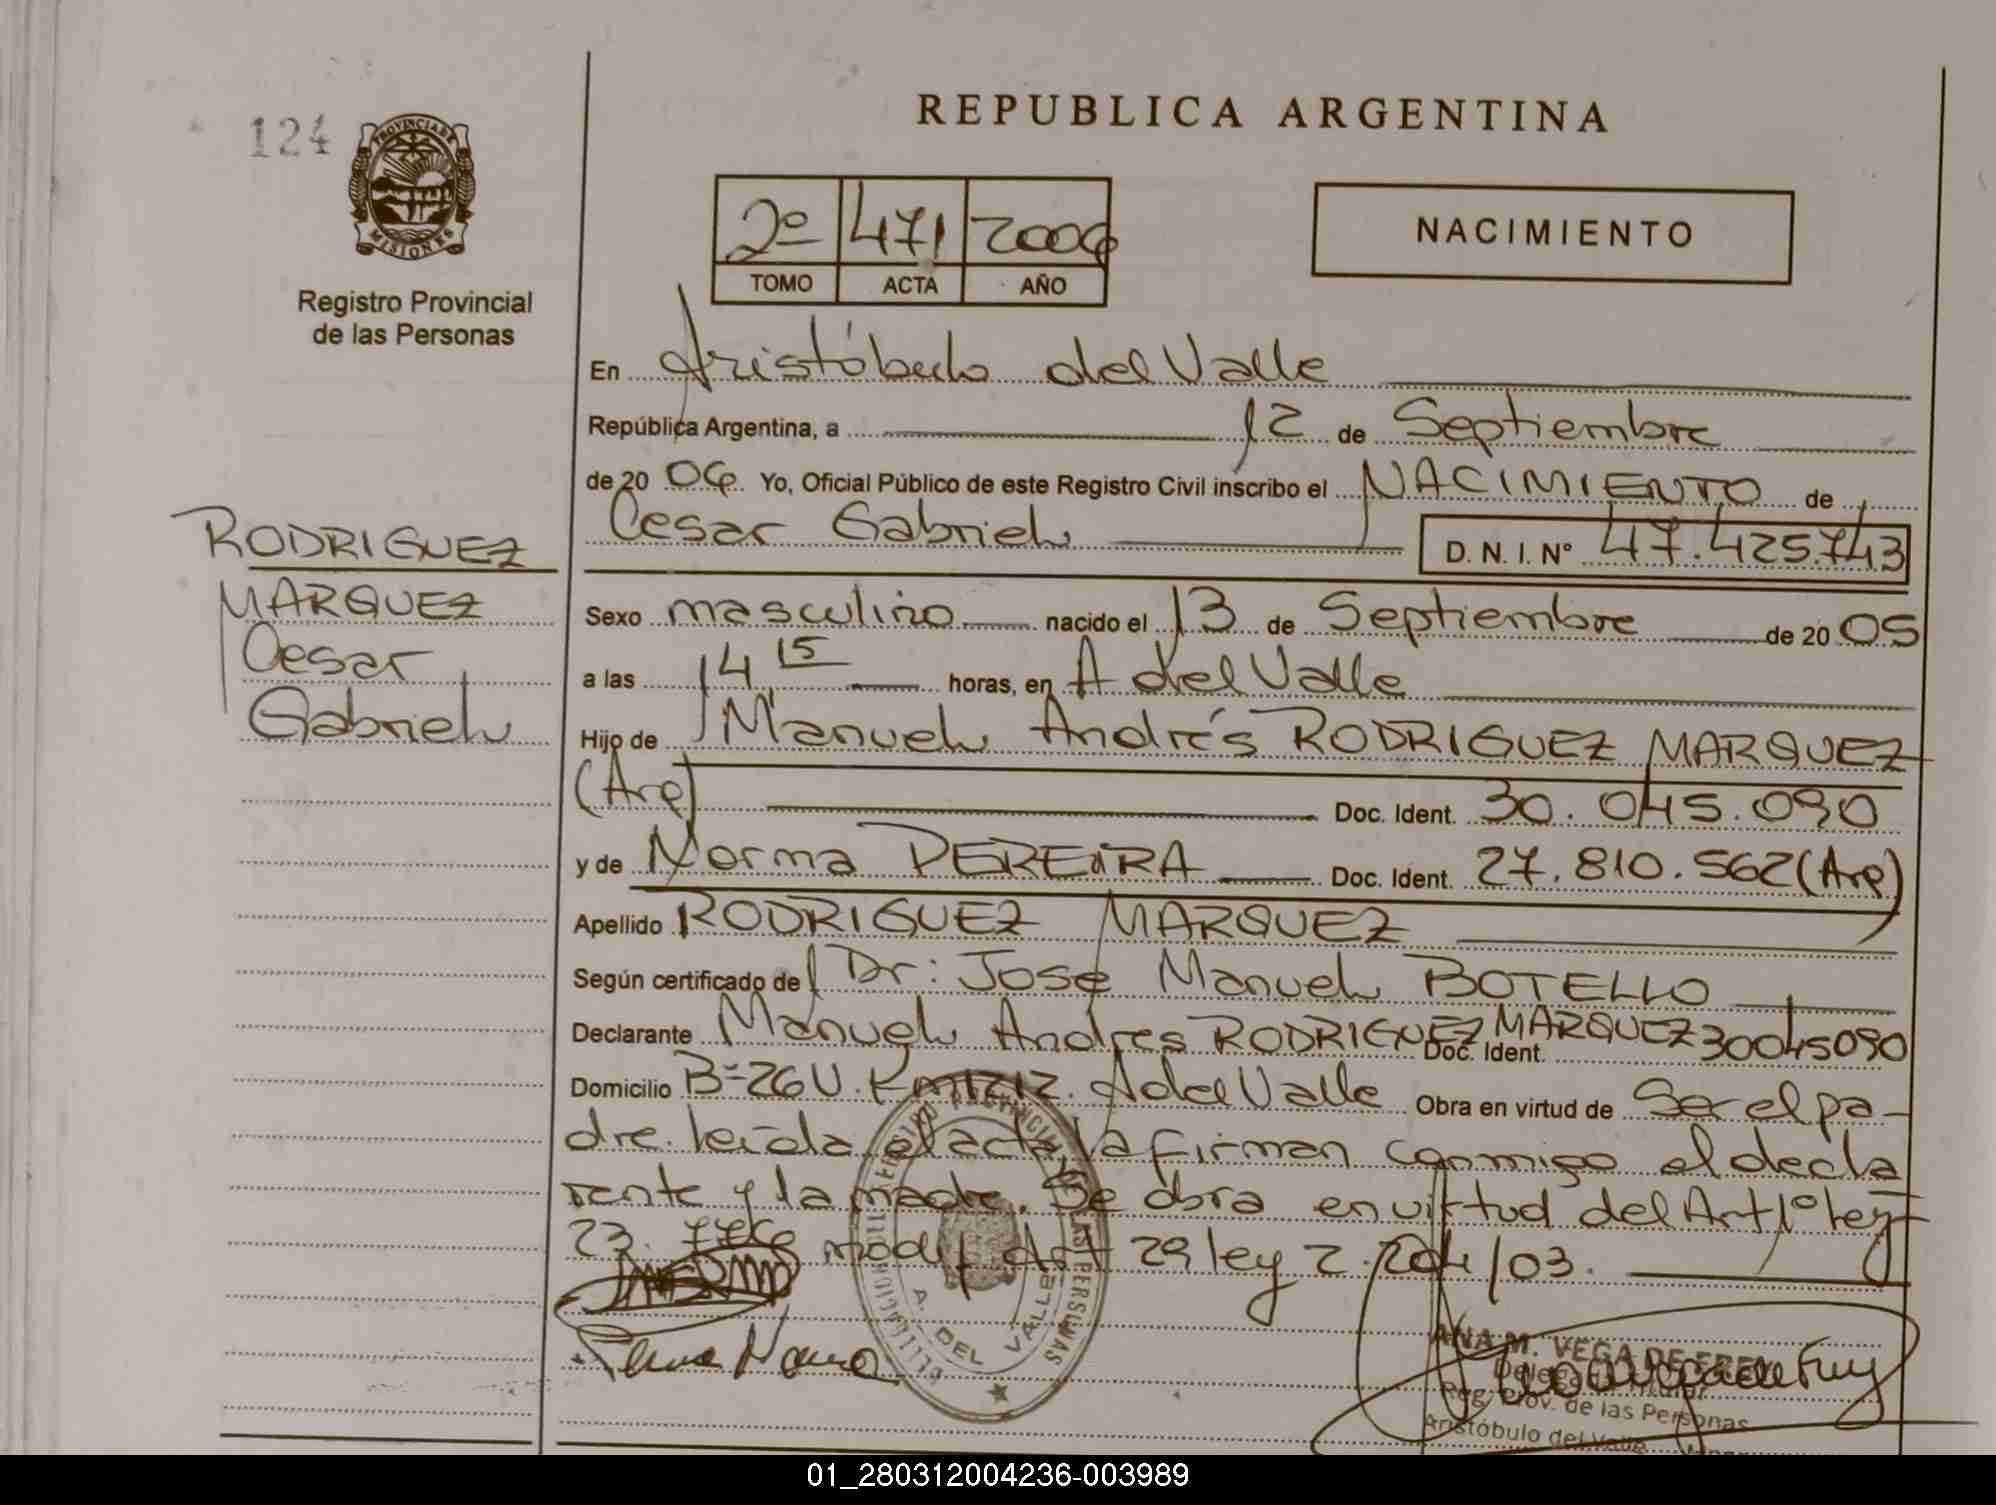 124
PROVINCIA DE
MISIONES
Registro Provincial
de las Personas
REPUBLICA ARGENTINA
2º 471 2006
TOMO ACTA AÑO
NACIMIENTO
En Aristóbulo del Valle
República Argentina, a 12 de Septiembre
de 20 06 Yo, Oficial Público de este Registro Civil inscribo el NACIMIENTO de
Cesar Gabriel D. N. I. Nº 47.425.743
RODRIGUEZ
MARQUEZ
Cesar
Gabriel
Sexo masculino nacido el 13 de Septiembre de 20 05
a las 14 15 horas, en A del Valle
Hijo de Manuel Andrés RODRIGUEZ MARQUEZ
(Arg) Doc. Ident. 30.045.090
y de Norma PEREIRA Doc. Ident. 27.810.562 (Arg)
Apellido RODRIGUEZ MARQUEZ
Según certificado de Dr: Jose Manuel BOTELLO
Declarante Manuel Andres RODRIGUEZ MARQUEZ Doc. Ident. 30045090
Domicilio Bº 26 U. Km 1212. A del Valle Obra en virtud de Ser el pa-
dre. leída el acta, la firman conmigo el decla
rante y la madre. Se obra en virtud del Art 1º ley
23.776 modif Art 29 ley 2. /03.
REGISTRO PROVINCIAL DE LAS PERSONAS
A. DEL VALLE
ANA M. VEGA DE FREY
Delegada Titular
Reg. Prov. de las Personas
Aristóbulo del Valle
01_280312004236-003989